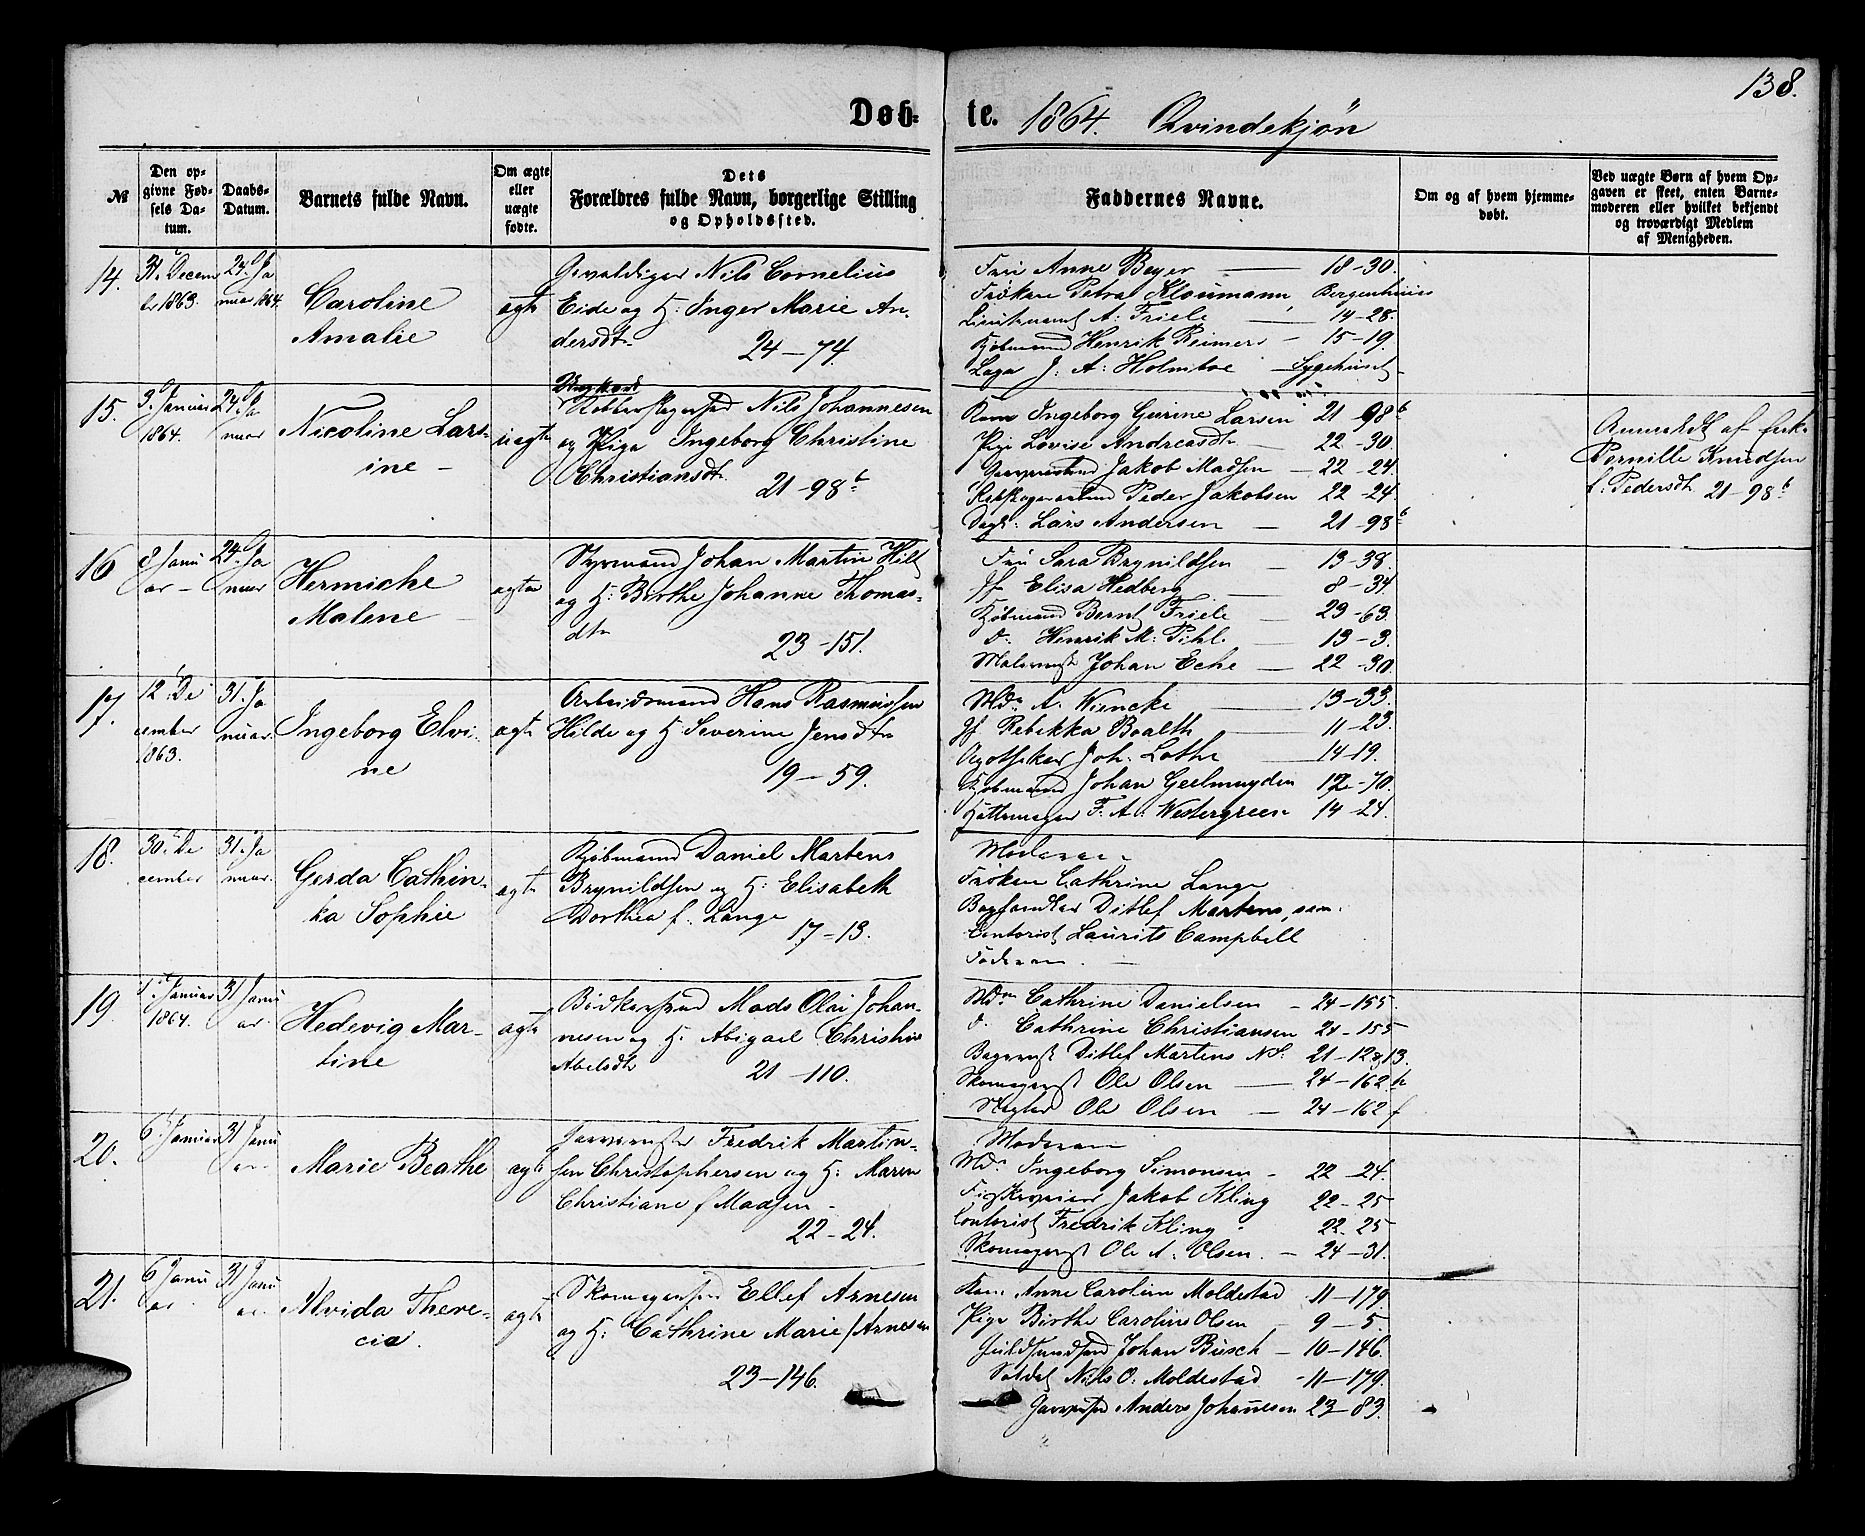 138.
Døb-
te. 1864. Qvindekjøn
№
Den op-
givne Fød-
sels Da-
tum.
Daabs-
Datum.
Barnets fulde Navn.
Om ægte
eller
uægte
fødte.
Dets
Forældres fulde Navn, borgerlige Stilling
og Opholdssted.
Faddernes Navne.
Om og af hvem hjemme-
døbt.
Ved uægte Børn af hvem Op-
gaven er skeet, enten Barne-
moderen eller hvilket bekjendt
og troværdigt Medlem
af Menigheden.
14.
31. Decem
br 1863.
24. Ja
nuar 1864.
Caroline
Amalie
ægte
Gevaldiger Nils Cornelius
Eide og H: Inger Marie An-
dersdtr
24-74.
Fru Anne Beyer - 18-30.
Frøken Petra Kloumann, Bergenhuus
Lieutenant A. Friele - 14-28.
Kjøbmand Henrik Reimers - 15-19.
Læge J. A. Holmboe - Sygehuset
15.
3. Januar
1864.
24. Ja
nuar
Nicoline Lars-
ine -
uægte
Ungkarl
Nils Johannesen
og Pige Ingeborg Christine
Christiansdtr
21-98 b
Kone Ingeborg Gurine Larsen 21-98 b
Pige Lovise Andreasdtr 22-30
Jakob Madsen - 22-24.
Peder Jakobsen 22-24.
Dagk: Lars Andersen - 21-98 b
Anmeldt af Enke
Pernille Knudsen
f. Pedersdtr 21-98 b
16
8 Janu
ar -
24. Ja
nuar
Hermiche
Malene -
ægte
Styrmand Johan Martin Hilt
og H: Berthe Johanne Thomas-
dtr
23-151.
Fru Sara Brynildsen - 13-38.
Jf Elisa Hedberg - 8-34.
Kjøbmand Bernt Friele 23-63.
d. Henrik M. Pihl - 13-3.
Malermst Johan Eche - 22-30
17.
12. De
cember
1863.
31. Ja
nuar.
Ingeborg Elvi-
ne
ægte
Arbeidsmand Hans Rasmussen
Hilde og H: Severine Jensdtr
19-59.
Md. A. Wiencke - 13-33.
Jf Rebekka Boalth - 11-23.
Apotheker Joh. Lothe - 14-19.
Kjøbmand Johan Geelmuyden 12-70.
Hattemager F. A. Westergreen 14-24.
18.
30. De
cember
31. Ja
nuar.
Gerda Cathin-
ka Sophie
ægte
Kjøbmand Daniel Martens
Brynildsen og H: Elisabeth
Dorthea f. Lange
17-13.
Moderen
Frøken Cathrine Lange
Boghandler Ditlef Martens, sen:
Contorist Laurits Campbell
Faderen -
19.
1. Januar
1864.
31 Janu
ar.
Hedevig Mar-
tine
ægte
Bødkersvd Mads Olai Johan-
nesen og H: Abigael Christine
Abelsdtr
21-110.
Mdm Cathrine Danielsen - 24-155
d. Cathrine Christiansen 24-155
Bagermst Ditlef Martens NS: 21-12&13.
Skomagermst Ole Olsen - 24-162 h
Ole Olsen - 24-162 f
20.
6. Januar
31 Janu
ar
Marie Beathe
ægte
Garvermster Fredrik Martin-
sen Christophersen og H: Maren
Christiane f Madsen -
22-24.
Moderen
Md. Ingeborg Simonsen - 22-24.
Jakob Kling 22-25
Contorist Fredrik Kling - 22-25
Skomagermst Ole A. Olsen. - 24-31.
21.
6 Janu
ar.
31 Janu
ar.
Alvida There-
cia.
ægte
Skomagersvd Ellef Arnesen
og H: Cathrine Marie f Arnesen
23-146.
Kone Anne Caroline Moldestad 11-179
Pige Birthe Caroline Olsen - 9-5.
Johan Büsch - 10-146.
Soldat Nils O. Moldestad - 11-179.
Garversvd Anders Johannesen 23-83.